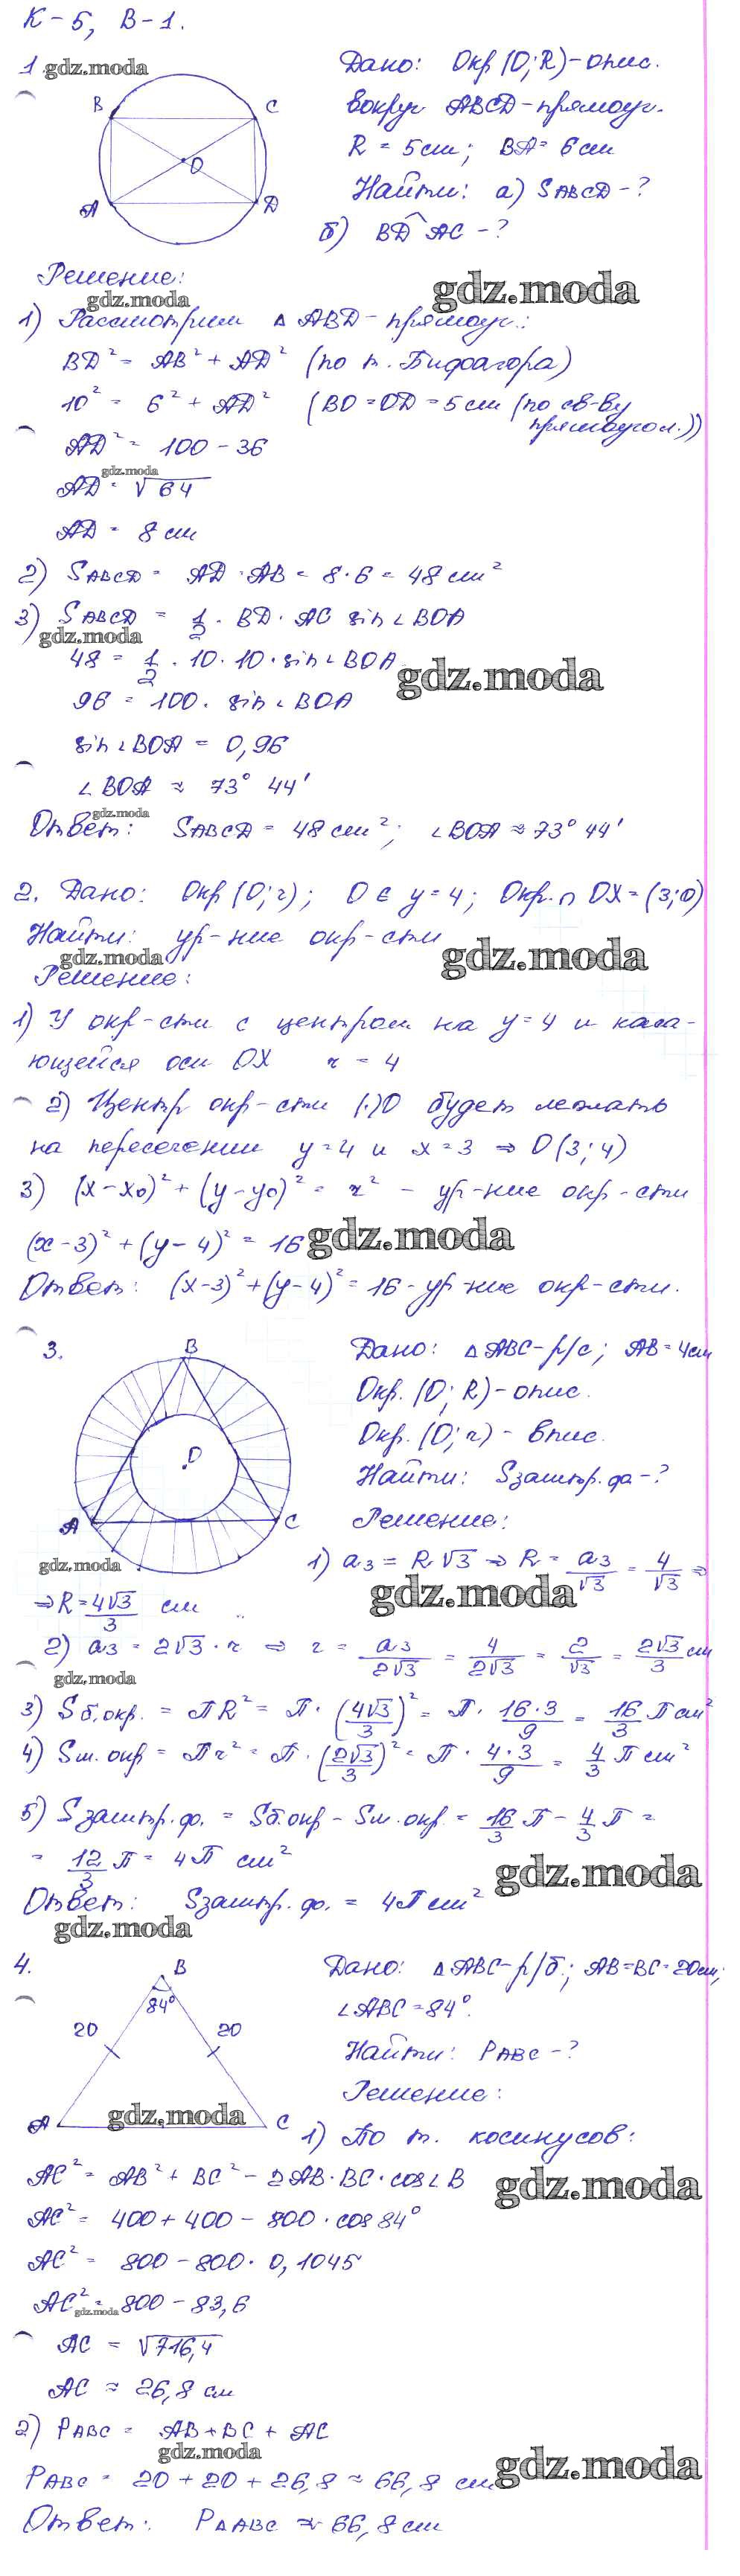 К-5, В-1.
1 gdz.moda
Дано: Окр (О; R) - опис.
вокруг ABCD - прямоуг.
R = 5 см; BA = 6 см
Найти: а) SABCD - ?
б) BD^AC - ?
B C O A D
Решение:
gdz.moda gdz.moda
1) Рассмотрим △ABD - прямоуг.:
BD² = AB² + AD² (по т. Пифагора)
10² = 6² + AD² (BO = OD = 5 см (по св-ву
прямоугол.))
AD² = 100 - 36
gdz.moda
AD = √64
AD = 8 см
2) SABCD = AD · AB = 8 · 6 = 48 см²
3) SABCD = 1/2 · BD · AC sin∠BOA
gdz.moda
48 = 1/2 · 10 · 10 · sin∠BOA
gdz.moda
96 = 100 · sin∠BOA
sin∠BOA = 0,96
∠BOA ≈ 73° 44'
gdz.moda
Ответ: SABCD = 48 см²; ∠BOA ≈ 73° 44'
2. Дано: Окр (О; r); O ∈ y = 4; Окр. ∩ OX = (3; 0)
Найти: ур-ние окр-сти
gdz.moda gdz.moda
Решение:
1) У окр-сти с центром на y = 4 и каса-
ющейся оси OX r = 4
2) Центр окр-сти (·)O будет лежать
на пересечении y = 4 и x = 3 ⇒ O (3; 4)
3) (x - x0)² + (y - y0)² = r² - ур-ние окр-сти
(x - 3)² + (y - 4)² = 16 gdz.moda
Ответ: (x-3)² + (y-4)² = 16 - ур-ние окр-сти.
3.
B O A C
Дано: △ABC - р/с; AB = 4см
Окр. (О; R) - опис.
Окр. (О; r) - впис.
Найти: Sзаштр. ф - ?
Решение:
gdz.moda
1) a3 = R√3 ⇒ R = a3/√3 = 4/√3 ⇒
gdz.moda
⇒ R = 4√3/3 см
2) a3 = 2√3 · r ⇒ r = a3/2√3 = 4/2√3 = 2/√3 = 2√3/3 см
gdz.moda
3) Sб.окр. = πR² = π · (4√3/3)² = π · 16·3/9 = 16/3 π см²
4) Sм. окр = πr² = π · (2√3/3)² = π · 4·3/9 = 4/3 π см²
5) Sзаштр. ф. = Sб.окр - Sм. окр. = 16/3 π - 4/3 π =
= 12/3 π = 4π см²
gdz.moda
Ответ: Sзаштр. ф. = 4π см²
gdz.moda
4.
B 84° 20 20 A C
gdz.moda
Дано: △ABC - р/б; AB = BC = 20см;
∠ABC = 84°.
Найти: PABC - ?
Решение:
1) По т. косинусов:
AC² = AB² + BC² - 2AB · BC · cos∠B
gdz.moda
AC² = 400 + 400 - 800 · cos 84°
AC² = 800 - 800 · 0,1045
AC² = 800 - 83,6
gdz.moda
AC = √716,4
AC ≈ 26,8 см
2) PABC = AB + BC + AC
gdz.moda gdz.moda
PABC = 20 + 20 + 26,8 ≈ 66,8 см
Ответ: P△ABC ≈ 66,8 см